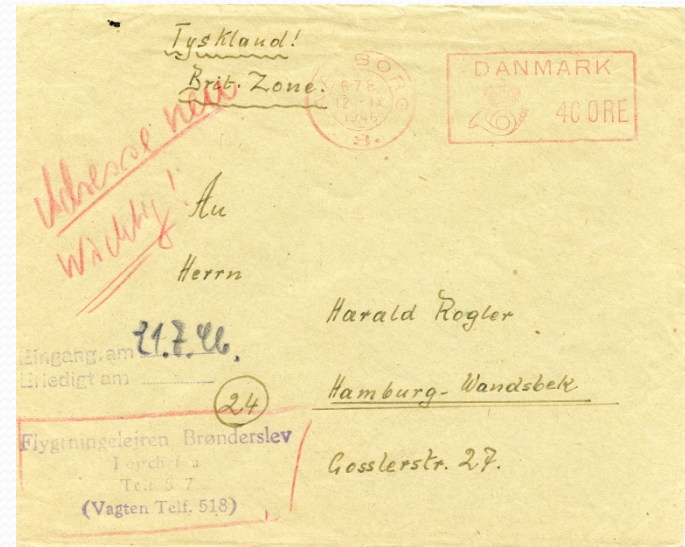 Tyskland!
Brit. Zone.
BORG
12. IX
1946
3.
DANMARK
40 ØRE
Adresse neu
Wichtig!
An
Herrn
Harald Rogler
Hamburg-Wandsbek
Gosslerstr. 27.
Eingang am 21.7.46.
Erledigt am
24
Flygtningelejren Brønderslev
(Vagten Telf. 518)